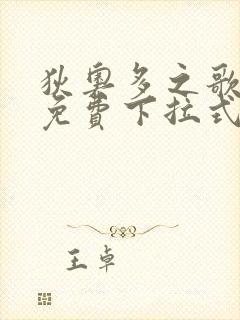 狄奥多之歌
免費下拉式
王卓